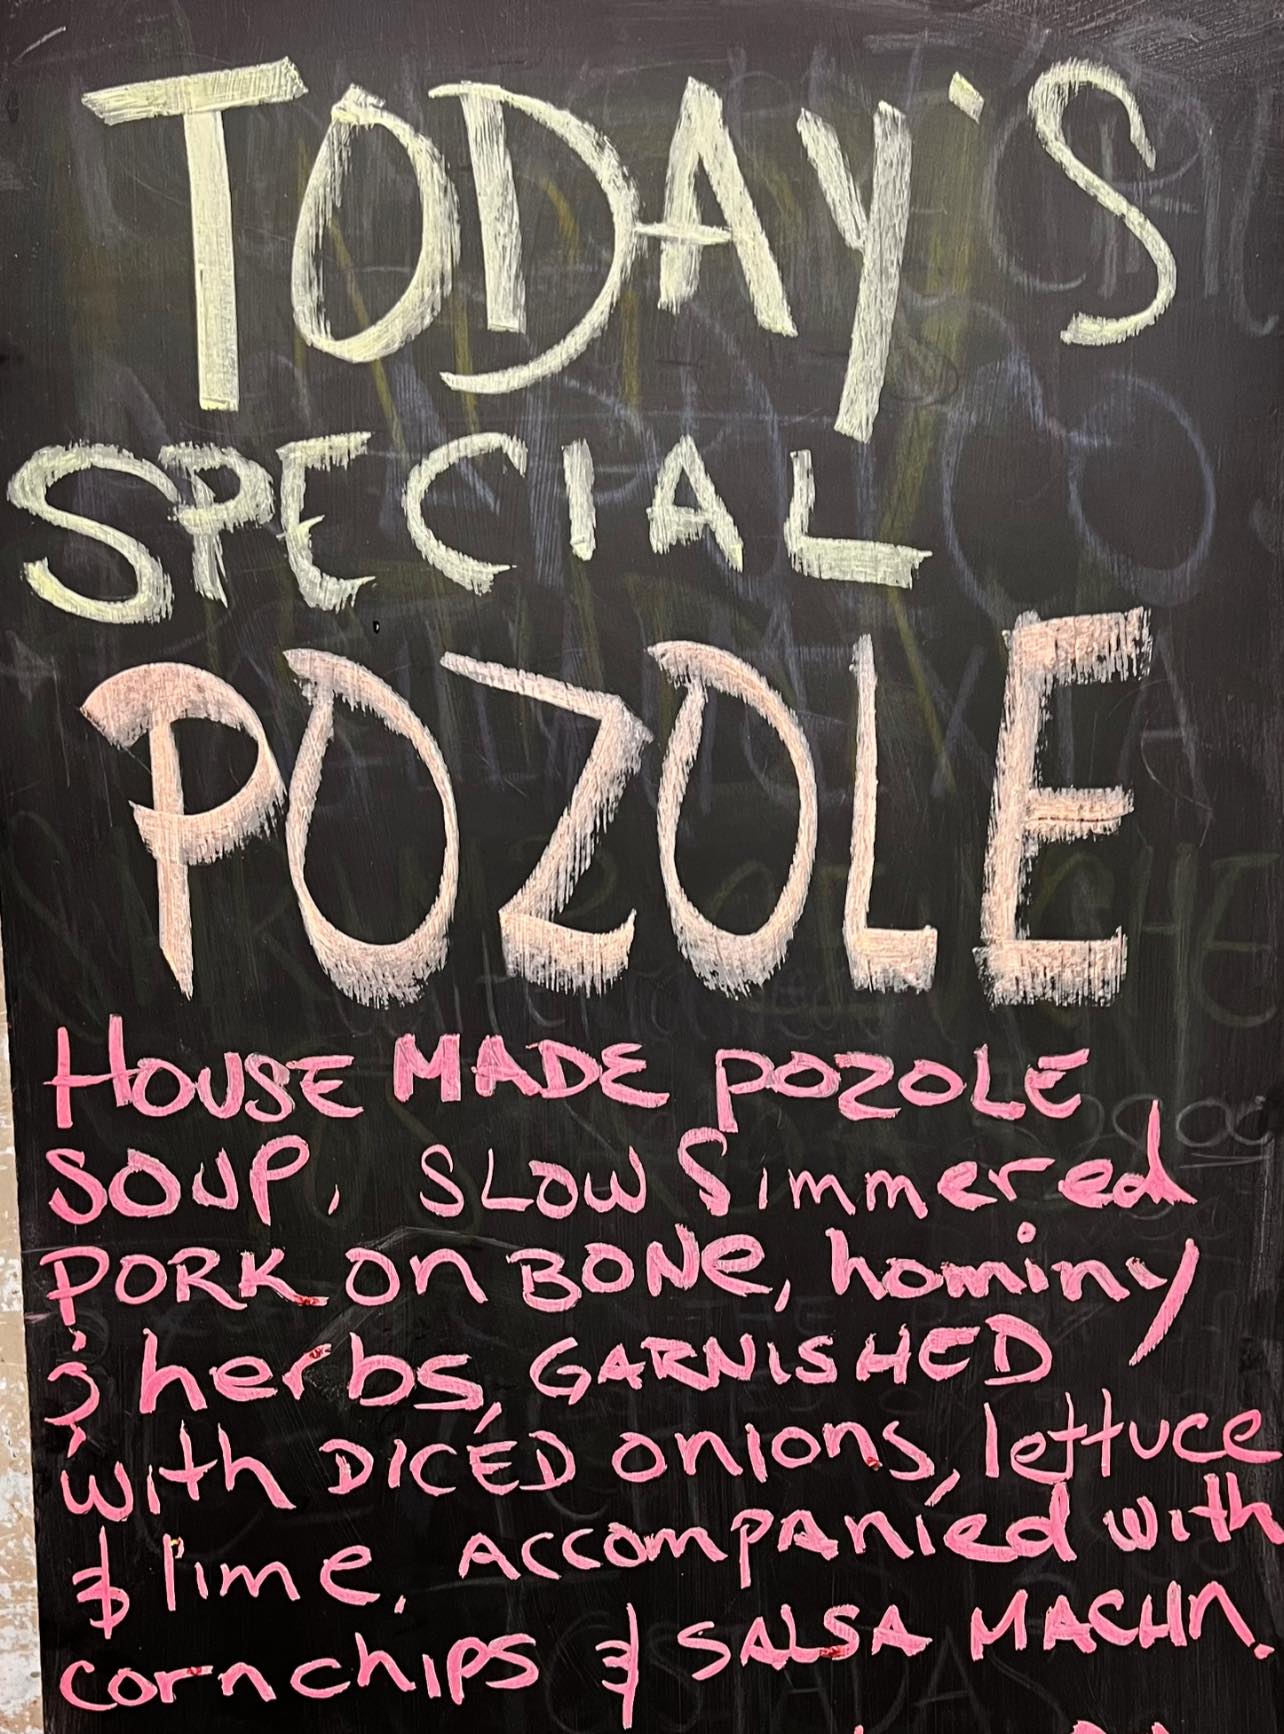 TODAY'S
SPECIAL
POZOLE
HOUSE MADE POZOLE
SOUP, SLOW Simmered
PORK on BONe, hominy
& herbs, GARNISHED
with DICED onions, lettuce
& lime, Accompanied with
corn chips & SALSA MACHA.